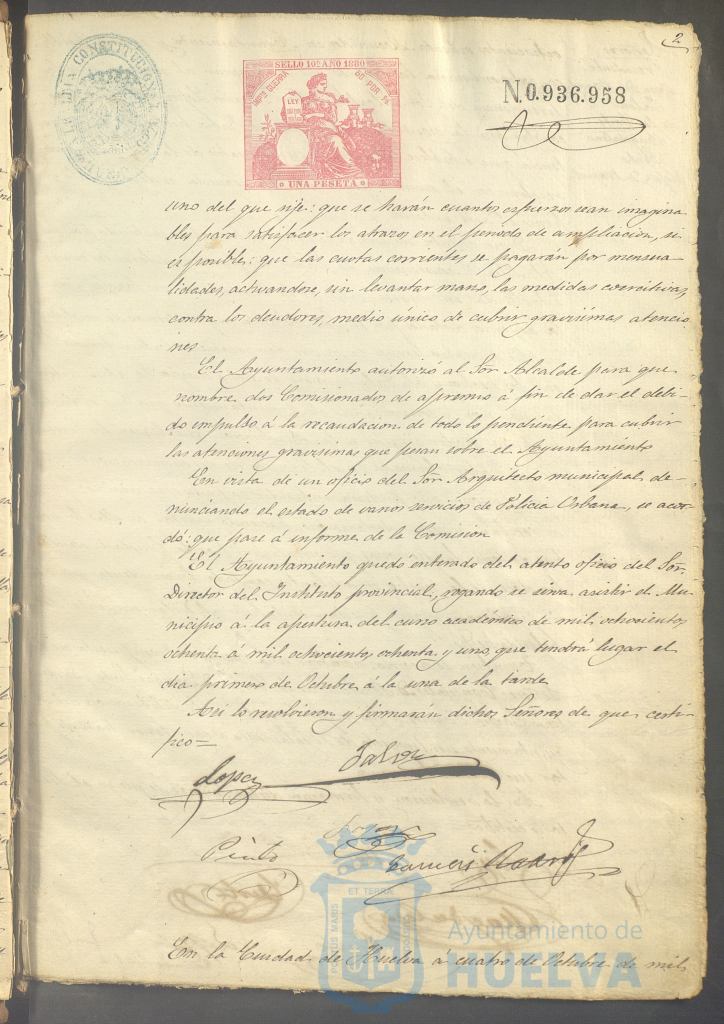 2
ALCALDIA CONSTITUCIONAL
SELLO 10º AÑO 1880
IMPTO GUERRA
50 POR %
LEY
UNA PESETA
N.0.936.958
uno del que rije: que se harán cuantos esfuerzos sean imagina
bles para satisfacer los atrazos en el periodo de ampliacion, si
es posible: que las cuotas corrientes se pagarán por mensua-
lidades, activandose, sin levantar mano, las medidas coercitivas,
contra los deudores, medio único de cubrir gravisimas atencio
nes.
El Ayuntamiento autorizó al Sor Alcalde para que
nombre dos Comisionados de apremio á fin de dar el debi-
do impulso á la recaudacion de todo lo pendiente para cubrir
las atenciones gravisimas que pesan sobre el Ayuntamiento
En vista de un oficio del Sor Arquitecto municipal de-
nunciando el estado de varios servicios de Policia Urbana, se acor-
dó: que pase á informe de la Comision
El Ayuntamiento quedó enterado del atento oficio del Sor
Director del Instituto provincial, rogando se sirva asistir el Mu-
nicipio á la apertura del curso académico de mil ochocientos
ochenta á mil ochocientos ochenta y uno, que tendrá lugar el
dia primero de Octubre á la una de la tarde
Asi lo resolvieron y firmarán dichos Señores de que certi-
fico=
Lopez
Pinto
ET TERRA
PORTUS MARIS
CUSTODIA
Ayuntamiento de
HUELVA
En la Ciudad de Huelva á cuatro de Octubre de mil